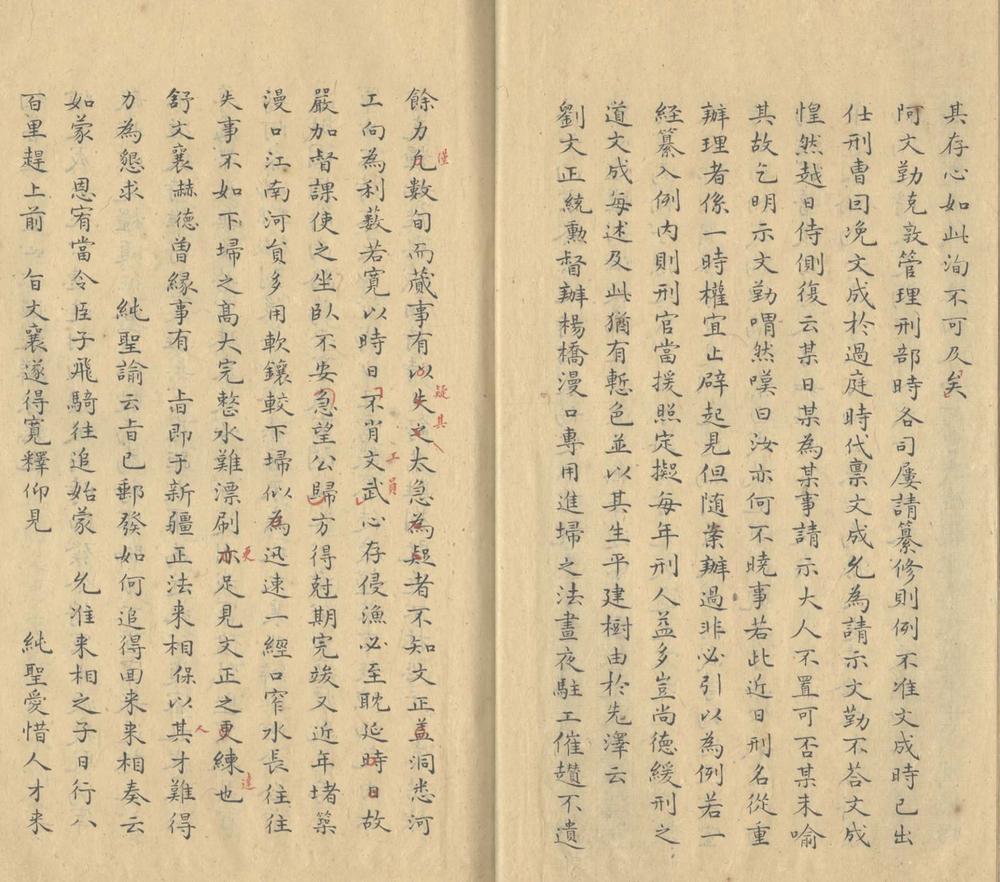 其存心如此洵不可及矣
阿文勤克敦管理刑部時各司屢請纂修則例不准文成時已出
仕刑曹回晚文成於過庭時代稟文成允為請示文勤不荅文成
惶然越日侍側復云某日某為某事請示大人不置可否某未喻
其故乞明示文勤喟然嘆曰汝亦何不曉事若此近日刑名從重
辦理者係一時權宜止辟起見但随案辦過非必引以為例若一
経纂入例内則刑官當援照定擬每年刑人益多豈尚德緩刑之
道文成每述及此猶有慙色並以其生平建樹由於先澤云
劉文正統勲督辦楊橋漫口專用進埽之法晝夜駐工催趲不遺
餘力凢數旬而蕆事有以失之太急為疑者不知文正盖洞悉河
工向為利薮若寛以時日不肖文武心存侵漁必至耽延時日故
嚴加督課使之坐臥不安急望公歸方得尅期完竣又近年堵築
漫口江南河貟多用軟鑲較下埽似為迅速一經口窄水長往往
失事不如下埽之髙大完整水難漂刷亦足見文正之更練也
舒文襄赫德曽緣事有 㫖即于新疆正法来相保以其才難得
力為懇求 純聖諭云㫖已郵發如何追得囬来来相奏云
如蒙 恩宥當令臣子飛騎往追始蒙 允准来相之子日行八
百里趕上前 㫖文襄遂得寛釋仰見 純聖愛惜人才来
僅
疑其
工員
更
人
達